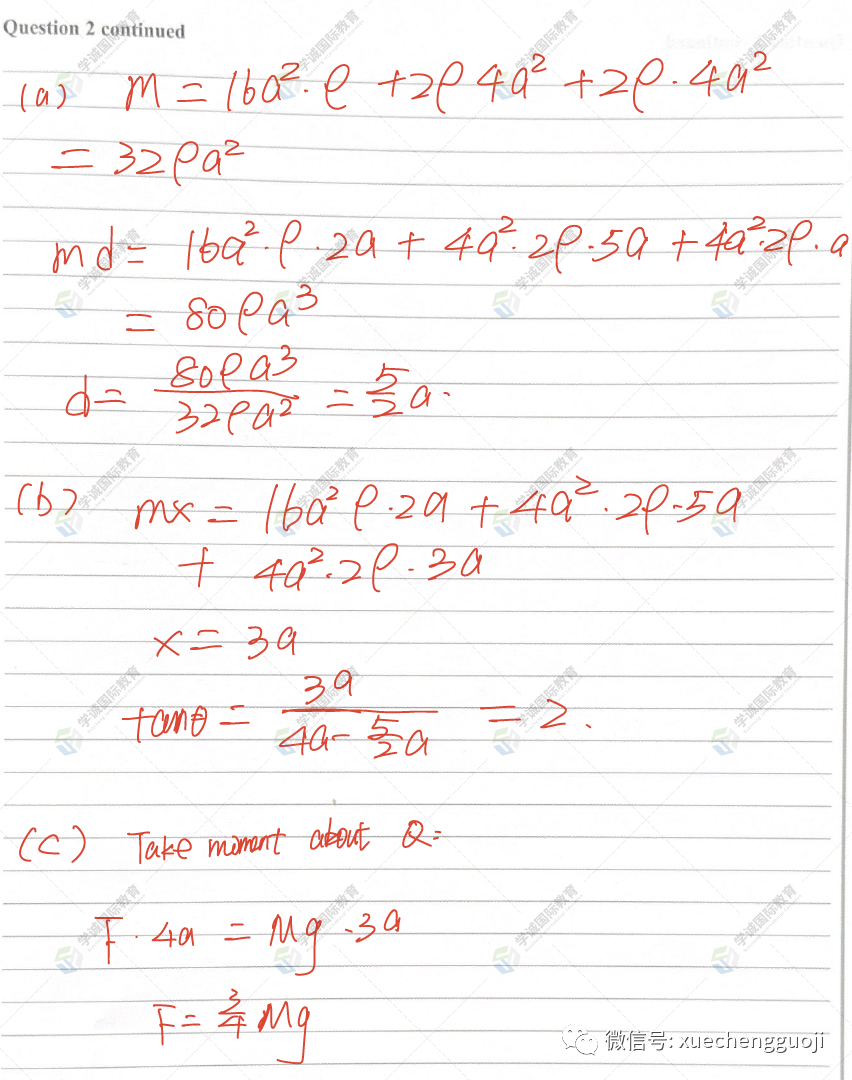 Question 2 continued
(a) M = 16a²·ρ + 2ρ 4a² + 2ρ·4a²
= 32ρa²
md = 16a²·ρ·2a + 4a²·2ρ·5a + 4a²·2ρ·a
= 80ρa³
d = 80ρa³ / 32ρa² = 5/2 a.
(b) mx = 16a²ρ·2a + 4a²·2ρ·5a
+ 4a²·2ρ·3a
x = 3a
tanθ = 3a / (4a - 5/2 a) = 2.
(c) Take moment about Q:
F·4a = Mg·3a
F = 3/4 Mg
学诚国际教育
微信号: xuechengguoji